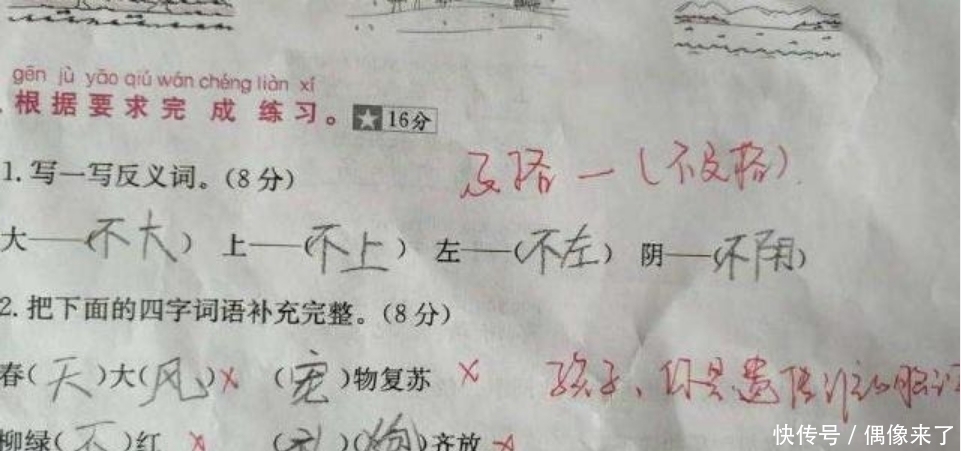 gēn jù yāo qiú wán chéng liàn xí
根据要求完成练习。★16分
1. 写一写反义词。(8分) 及格—(不及格)
大——(不大) 上——(不上) 左——(不左) 阴——(不阴)
2. 把下面的四字词语补充完整。(8分)
春(天)大(风)× (宠)物复苏 × 孩子、你是遗传谁的
柳绿(不)红 × 齐放 ×
快传号/偶像来了